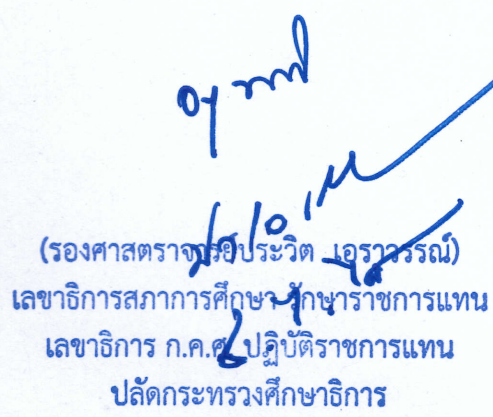 (รองศาสตราจารย์ประวิต เอราวรรณ์)
เลขาธิการสภาการศึกษา รักษาราชการแทน
เลขาธิการ ก.ค.ศ. ปฏิบัติราชการแทน
ปลัดกระทรวงศึกษาธิการ